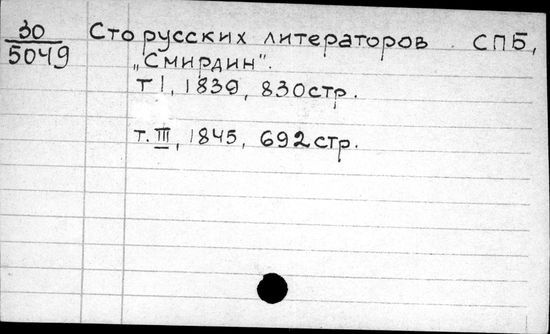 30
5049
Сто русских литераторов. СПБ,
„Смирдин".
т I, 1839, 830 стр.
т. III, 1845, 692 стр.